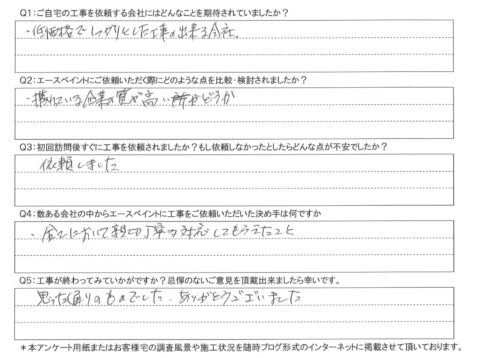 Q1：ご自宅の工事を依頼する会社にはどんなことを期待されていましたか？
・低価格でしっかりとした工事の出来る会社.
Q2：エースペイントにご依頼いただく際にどのような点を比較・検討されましたか？
・携れている企業の質が高い所かどうか
Q3：初回訪問後すぐに工事を依頼されましたか？もし依頼しなかったとしたらどんな点が不安でしたか？
依頼しました
Q4：数ある会社の中からエースペイントに工事をご依頼いただいた決め手は何ですか
・全てにおいて親切丁寧な対応してもらえたこと
Q5：工事が終わってみていかがですか？忌憚のないご意見を頂戴出来ましたら幸いです。
思った通りのものでした．ありがとうございました
＊本アンケート用紙またはお客様宅の調査風景や施工状況を随時ブログ形式のインターネットに掲載させて頂いております。